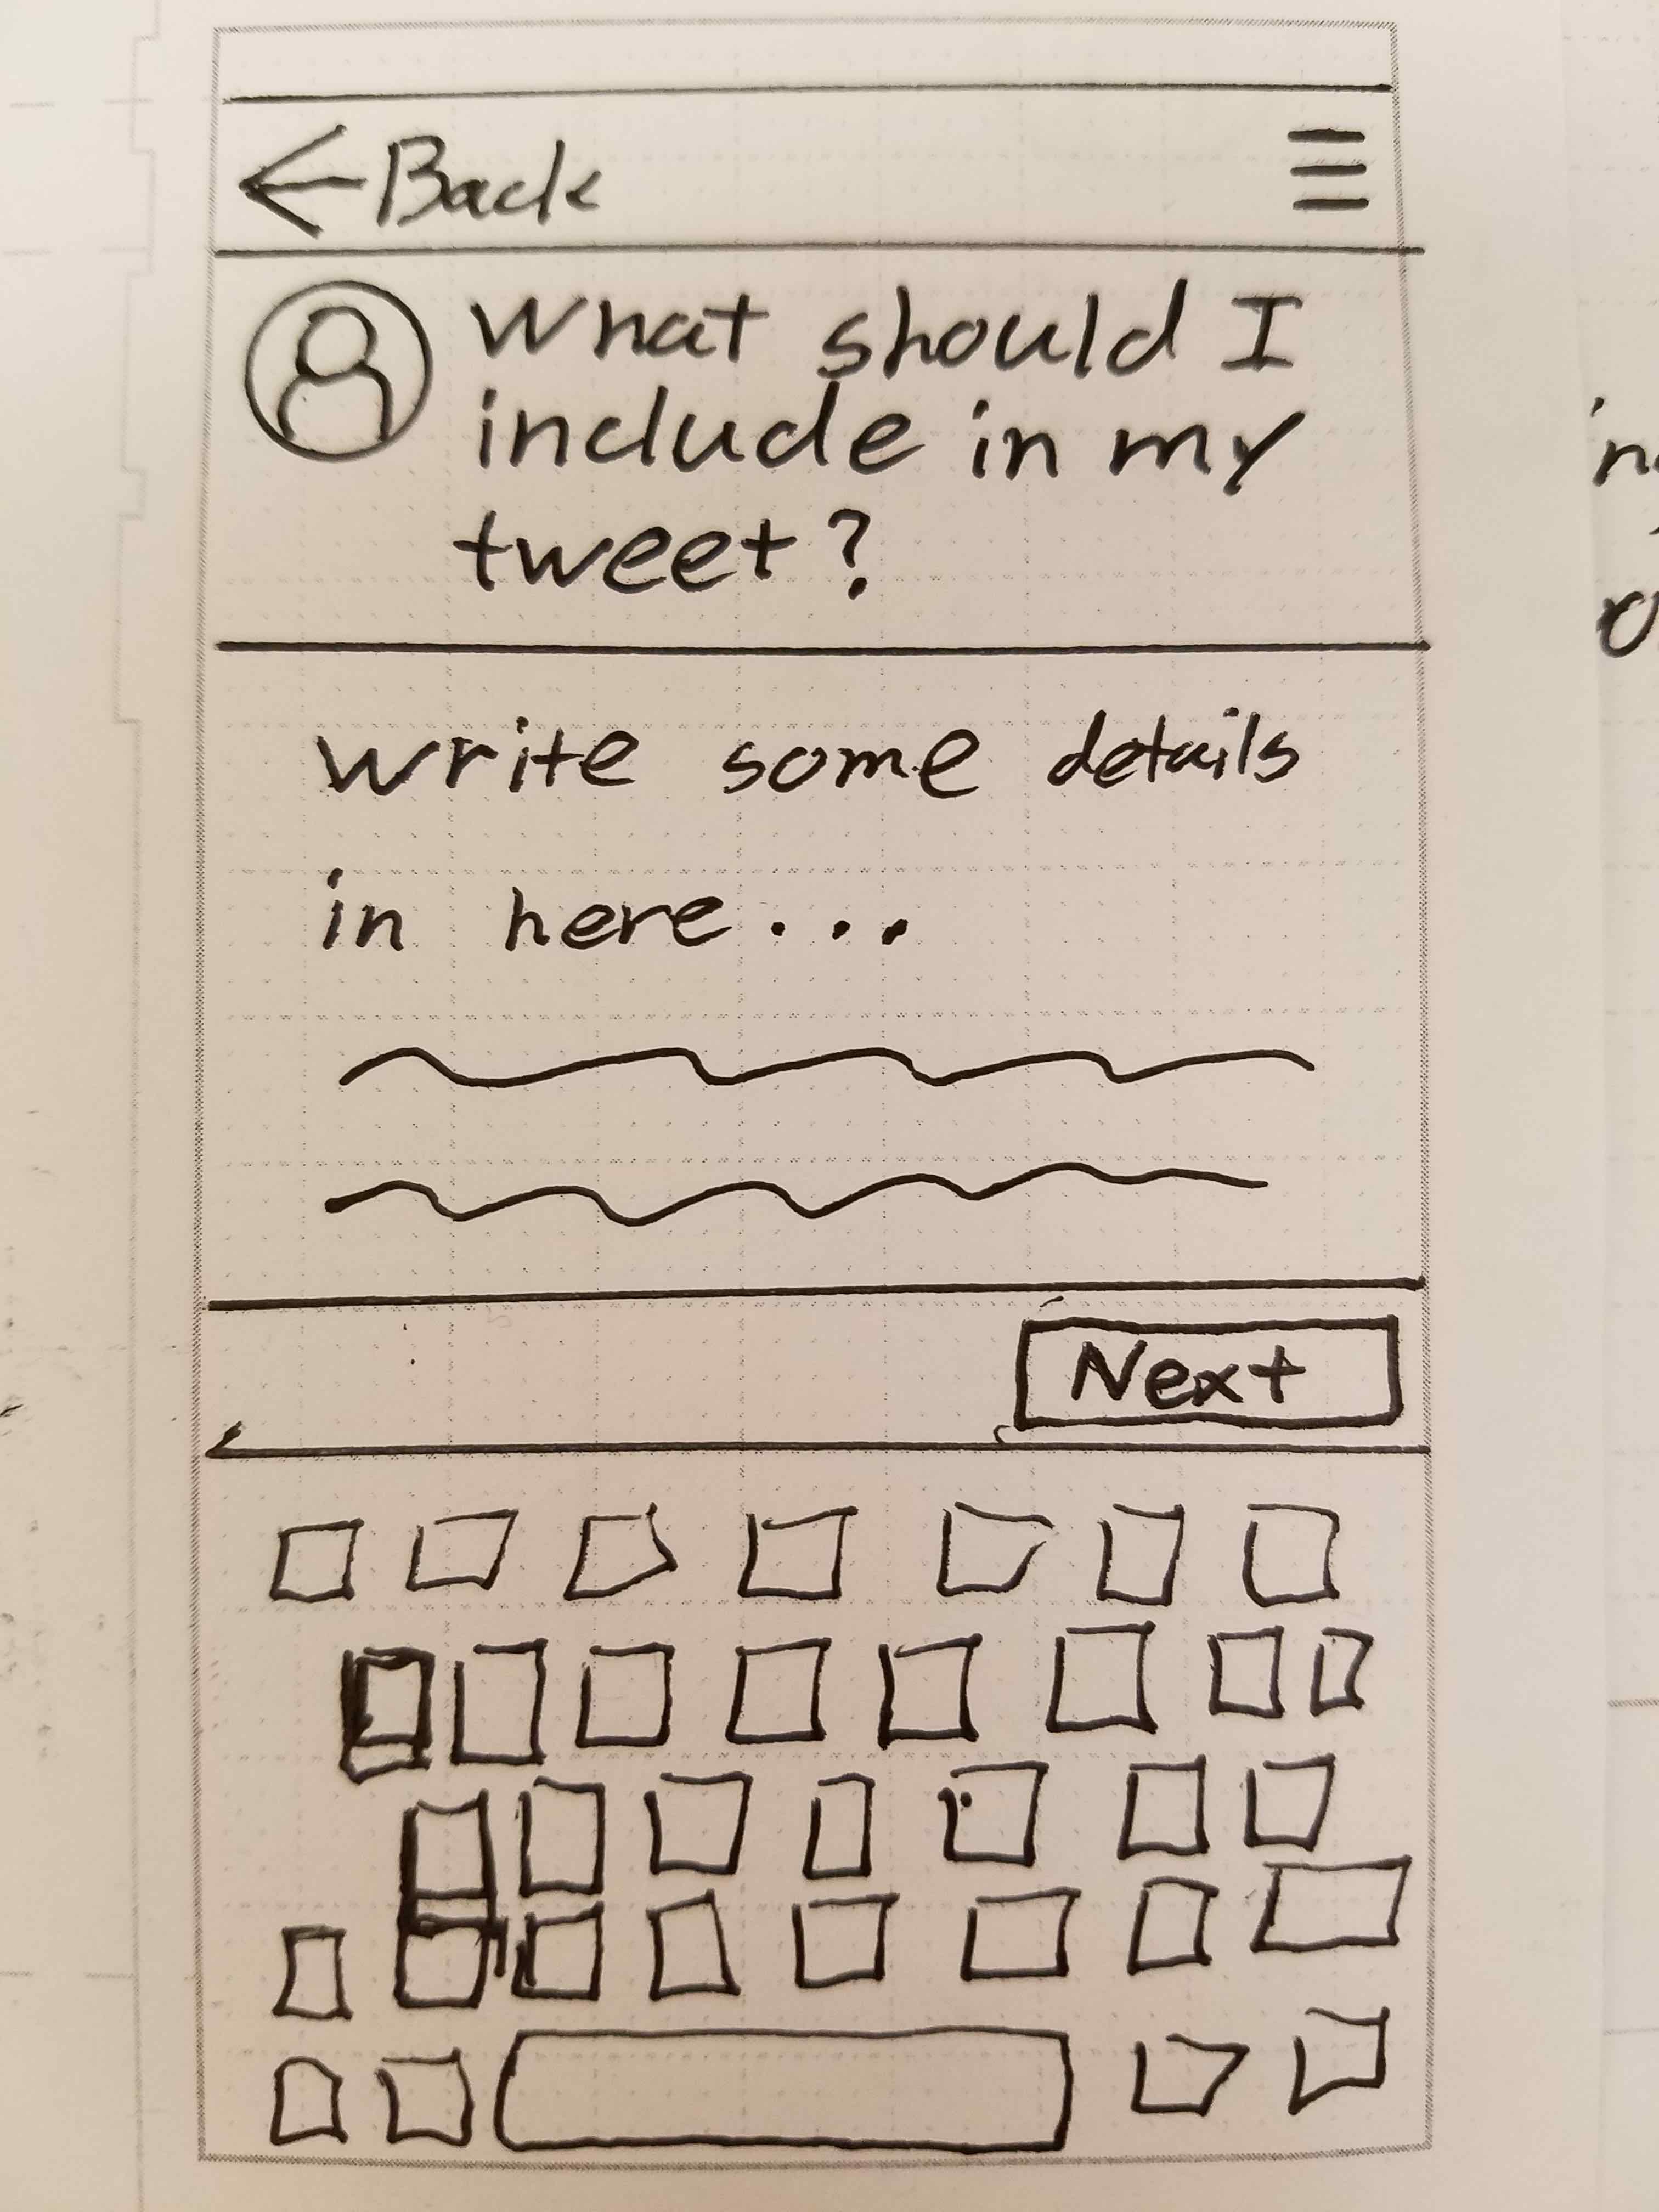 ←Back
What should I
include in my
tweet?
write some details
in here...
Next